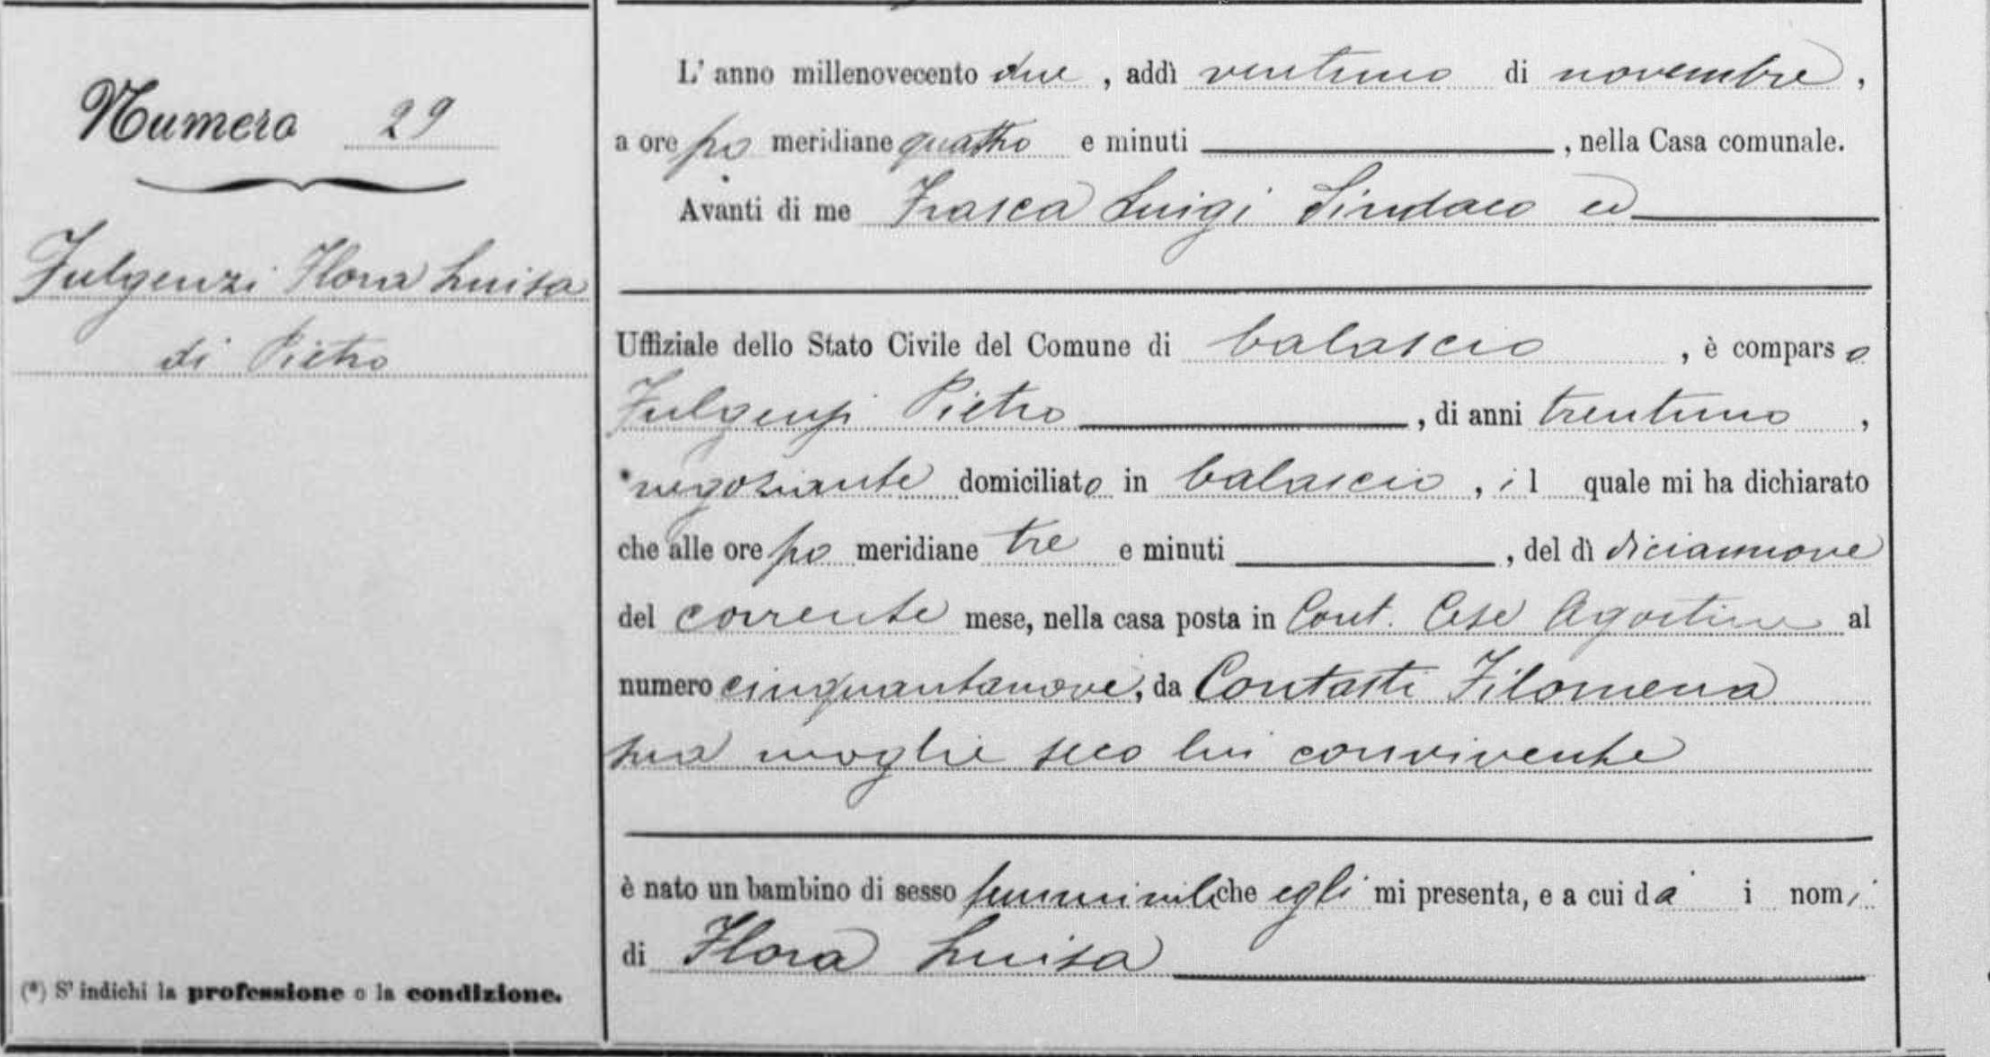 Numero 29
Fulgenzi Flora Luisa
di Pietro
(*) S' indichi la professione o la condizione.
L' anno millenovecento due, addì ventuno di novembre,
a ore po meridiane quattro e minuti, nella Casa comunale.
Avanti di me Frasca Luigi Sindaco ed
Uffiziale dello Stato Civile del Comune di Calascio, è comparso
Fulgenzi Pietro, di anni trentuno,
*negoziante domiciliato in Calascio, il quale mi ha dichiarato
che alle ore po meridiane tre e minuti, del dì diciannove
del corrente mese, nella casa posta in Cont. Cese Agostine al
numero cinquantanove, da Contasti Filomena
sua moglie seco lui convivente
è nato un bambino di sesso femminile che egli mi presenta, e a cui dà i nomi
di Flora Luisa